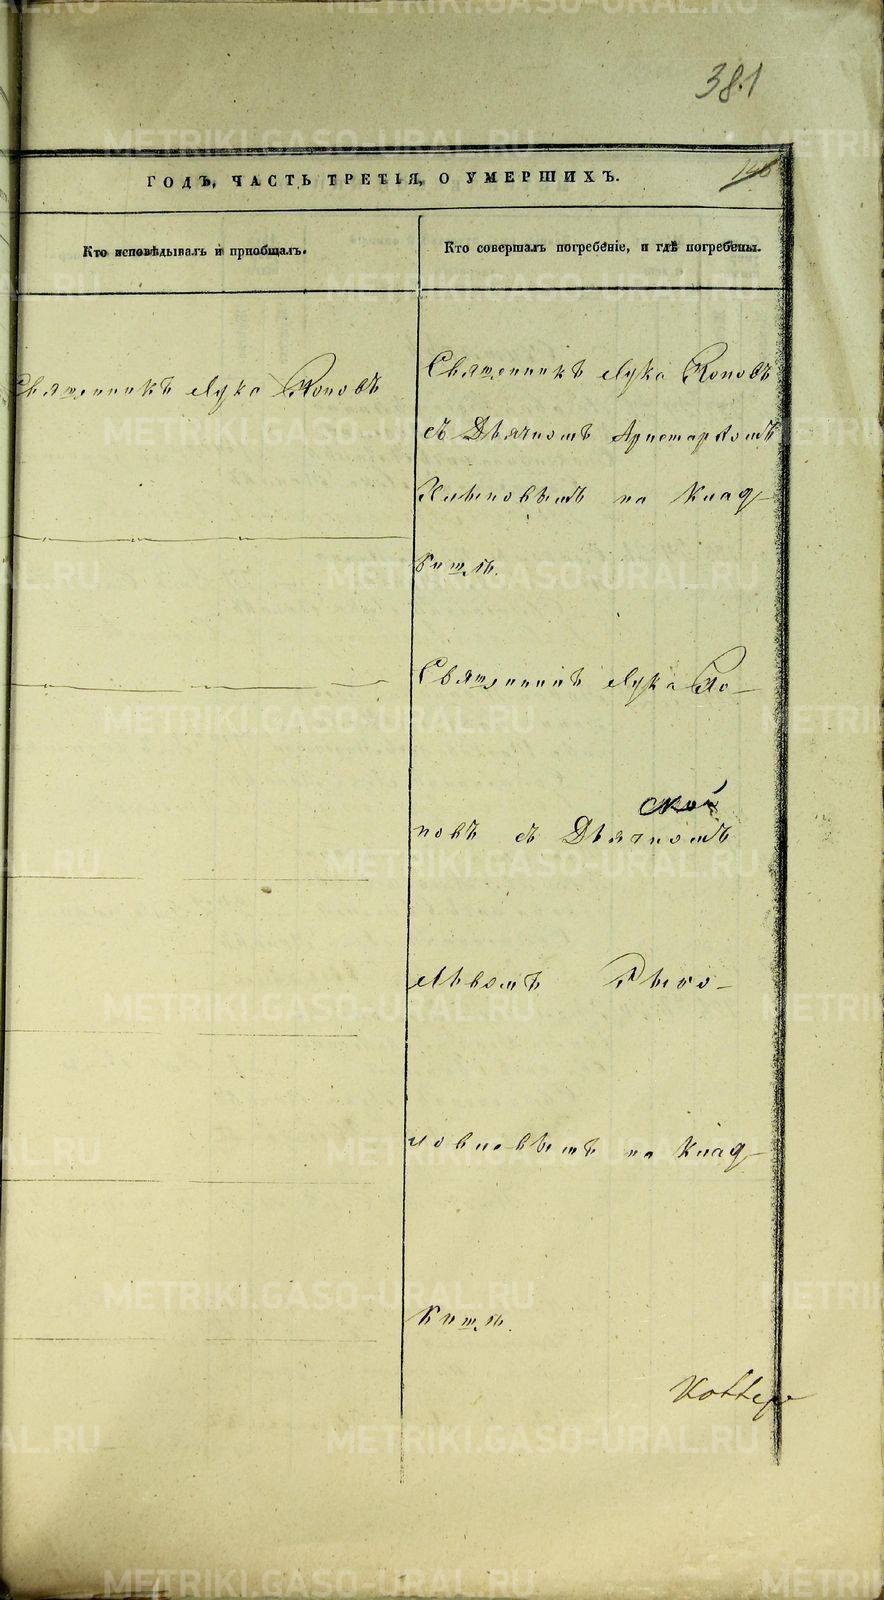 381
ГОДЪ, ЧАСТЬ ТРЕТІЯ, О УМЕРШИХЪ.
146
Кто исповѣдывалъ и пріобщалъ.
Кто совершалъ погребеніе, и гдѣ погребены.
Священникъ Лука Поповъ
Священникъ Лука Поповъ
съ Дьячкомъ Аристархомъ
на Клад-
бищѣ.
Священникъ Лука По-
ской
повъ съ Дьячкомъ
Львомъ
на Клад-
бищѣ.
METRIKI.GASO-URAL.RU